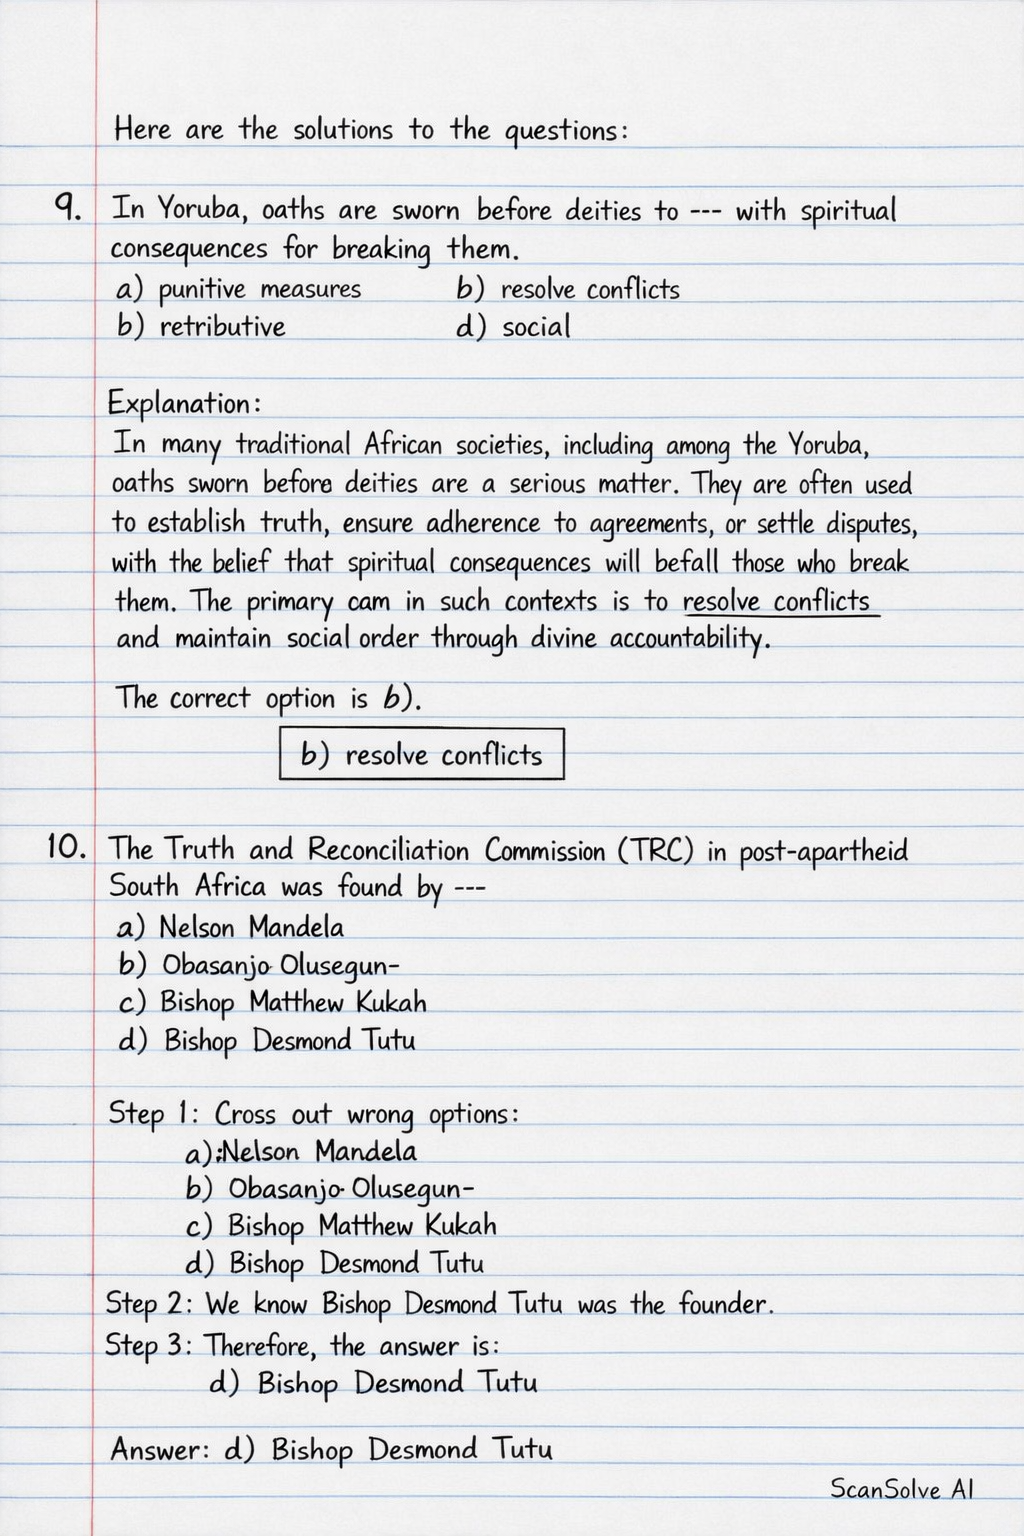 Here are the solutions to the questions:
9. In Yoruba, oaths are sworn before deities to --- with spiritual
consequences for breaking them.
a) punitive measures b) resolve conflicts
b) retributive d) social
Explanation:
In many traditional African societies, including among the Yoruba,
oaths sworn before deities are a serious matter. They are often used
to establish truth, ensure adherence to agreements, or settle disputes,
with the belief that spiritual consequences will befall those who break
them. The primary cam in such contexts is to resolve conflicts
and maintain social order through divine accountability.
The correct option is b).
b) resolve conflicts
10. The Truth and Reconciliation Commission (TRC) in post-apartheid
South Africa was found by ---
a) Nelson Mandela
b) Obasanjo Olusegun-
c) Bishop Matthew Kukah
d) Bishop Desmond Tutu
Step 1: Cross out wrong options:
a):Nelson Mandela
b) Obasanjo Olusegun-
c) Bishop Matthew Kukah
d) Bishop Desmond Tutu
Step 2: We know Bishop Desmond Tutu was the founder.
Step 3: Therefore, the answer is:
d) Bishop Desmond Tutu
Answer: d) Bishop Desmond Tutu
ScanSolve AI